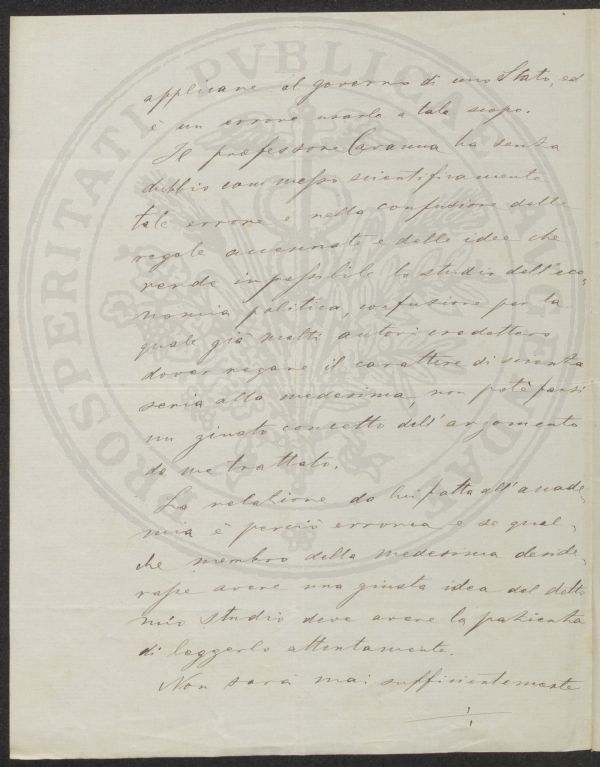 applicare al governo di uno Stato, ed
è un errore usarle a tale scopo.
Il professore Caranna ha senza
dubbio commesso scientificamente
tale errore e nella confusione delle
regole accennate e delle idee che
rende impossibile lo studio dell'eco-
nomia politica, confusione per la
quale già molti autori credettero
dover negare il carattere di scienza
seria alla medesima, non potè farsi
un giusto concetto dell'argomento
da me trattato.
La relazione da lui fatta all'accade-
mia è perciò erronea e se qual-
che membro della medesima deside-
rasse avere una giusta idea del detto
mio studio deve avere la pazienza
di leggerlo attentamente.
Non sarà mai sufficientemente
PROSPERITATI PVBLICAE AVGENDAE